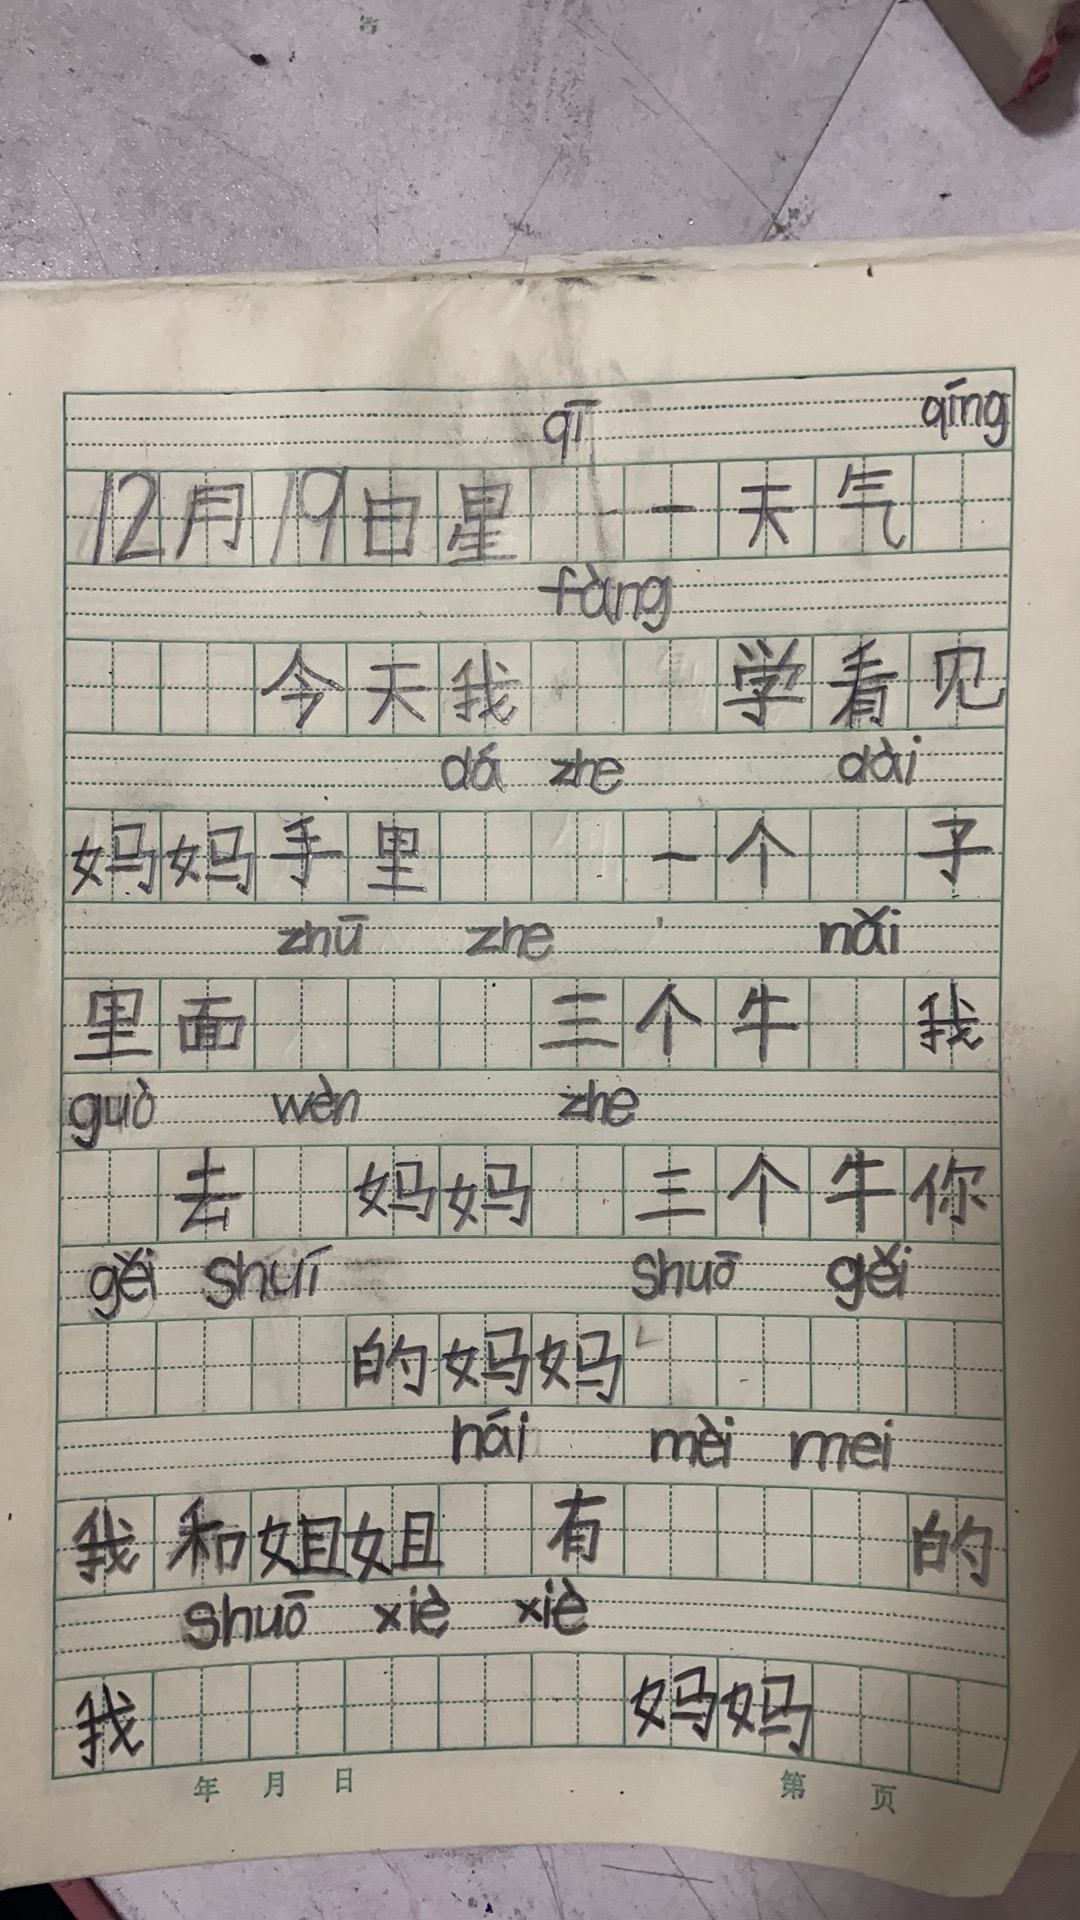 qī qíng
12月19日星 一天气
fàng
今天我 学看见
dá zhe dài
妈妈手里 一个 子
zhū zhe nǎi
里面 三个牛 我
guò wèn zhe
去 妈妈 三个牛你
gěi shuí shuō gěi
的妈妈
hái mèi mei
我和姐姐 有 的
shuō xiè xiè
我 妈妈
年 月 日 第 页